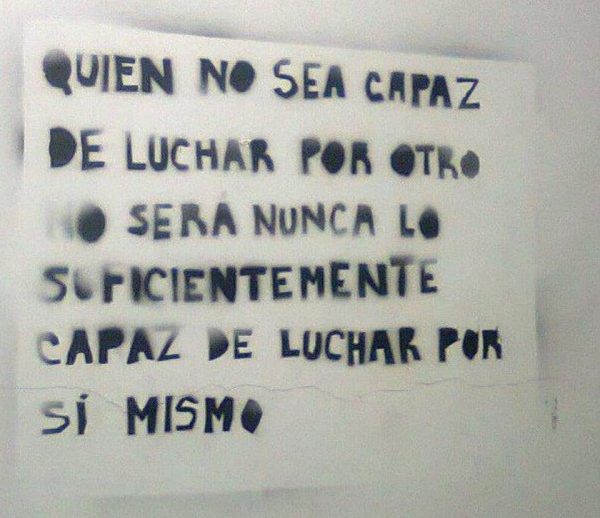 QUIEN NO SEA CAPAZ
DE LUCHAR POR OTRO
NO SERÁ NUNCA LO
SUFICIENTEMENTE
CAPAZ DE LUCHAR POR
SÍ MISMO